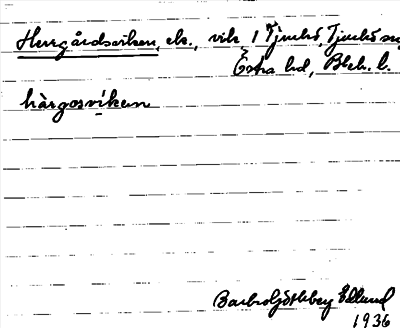 Herrgårdsviken, ek., vik i Tjurkö, Tjurkö sn,
Östra hd, Blek. l.
hàrgosvíken
Barbro Göthberg Edlund
1936